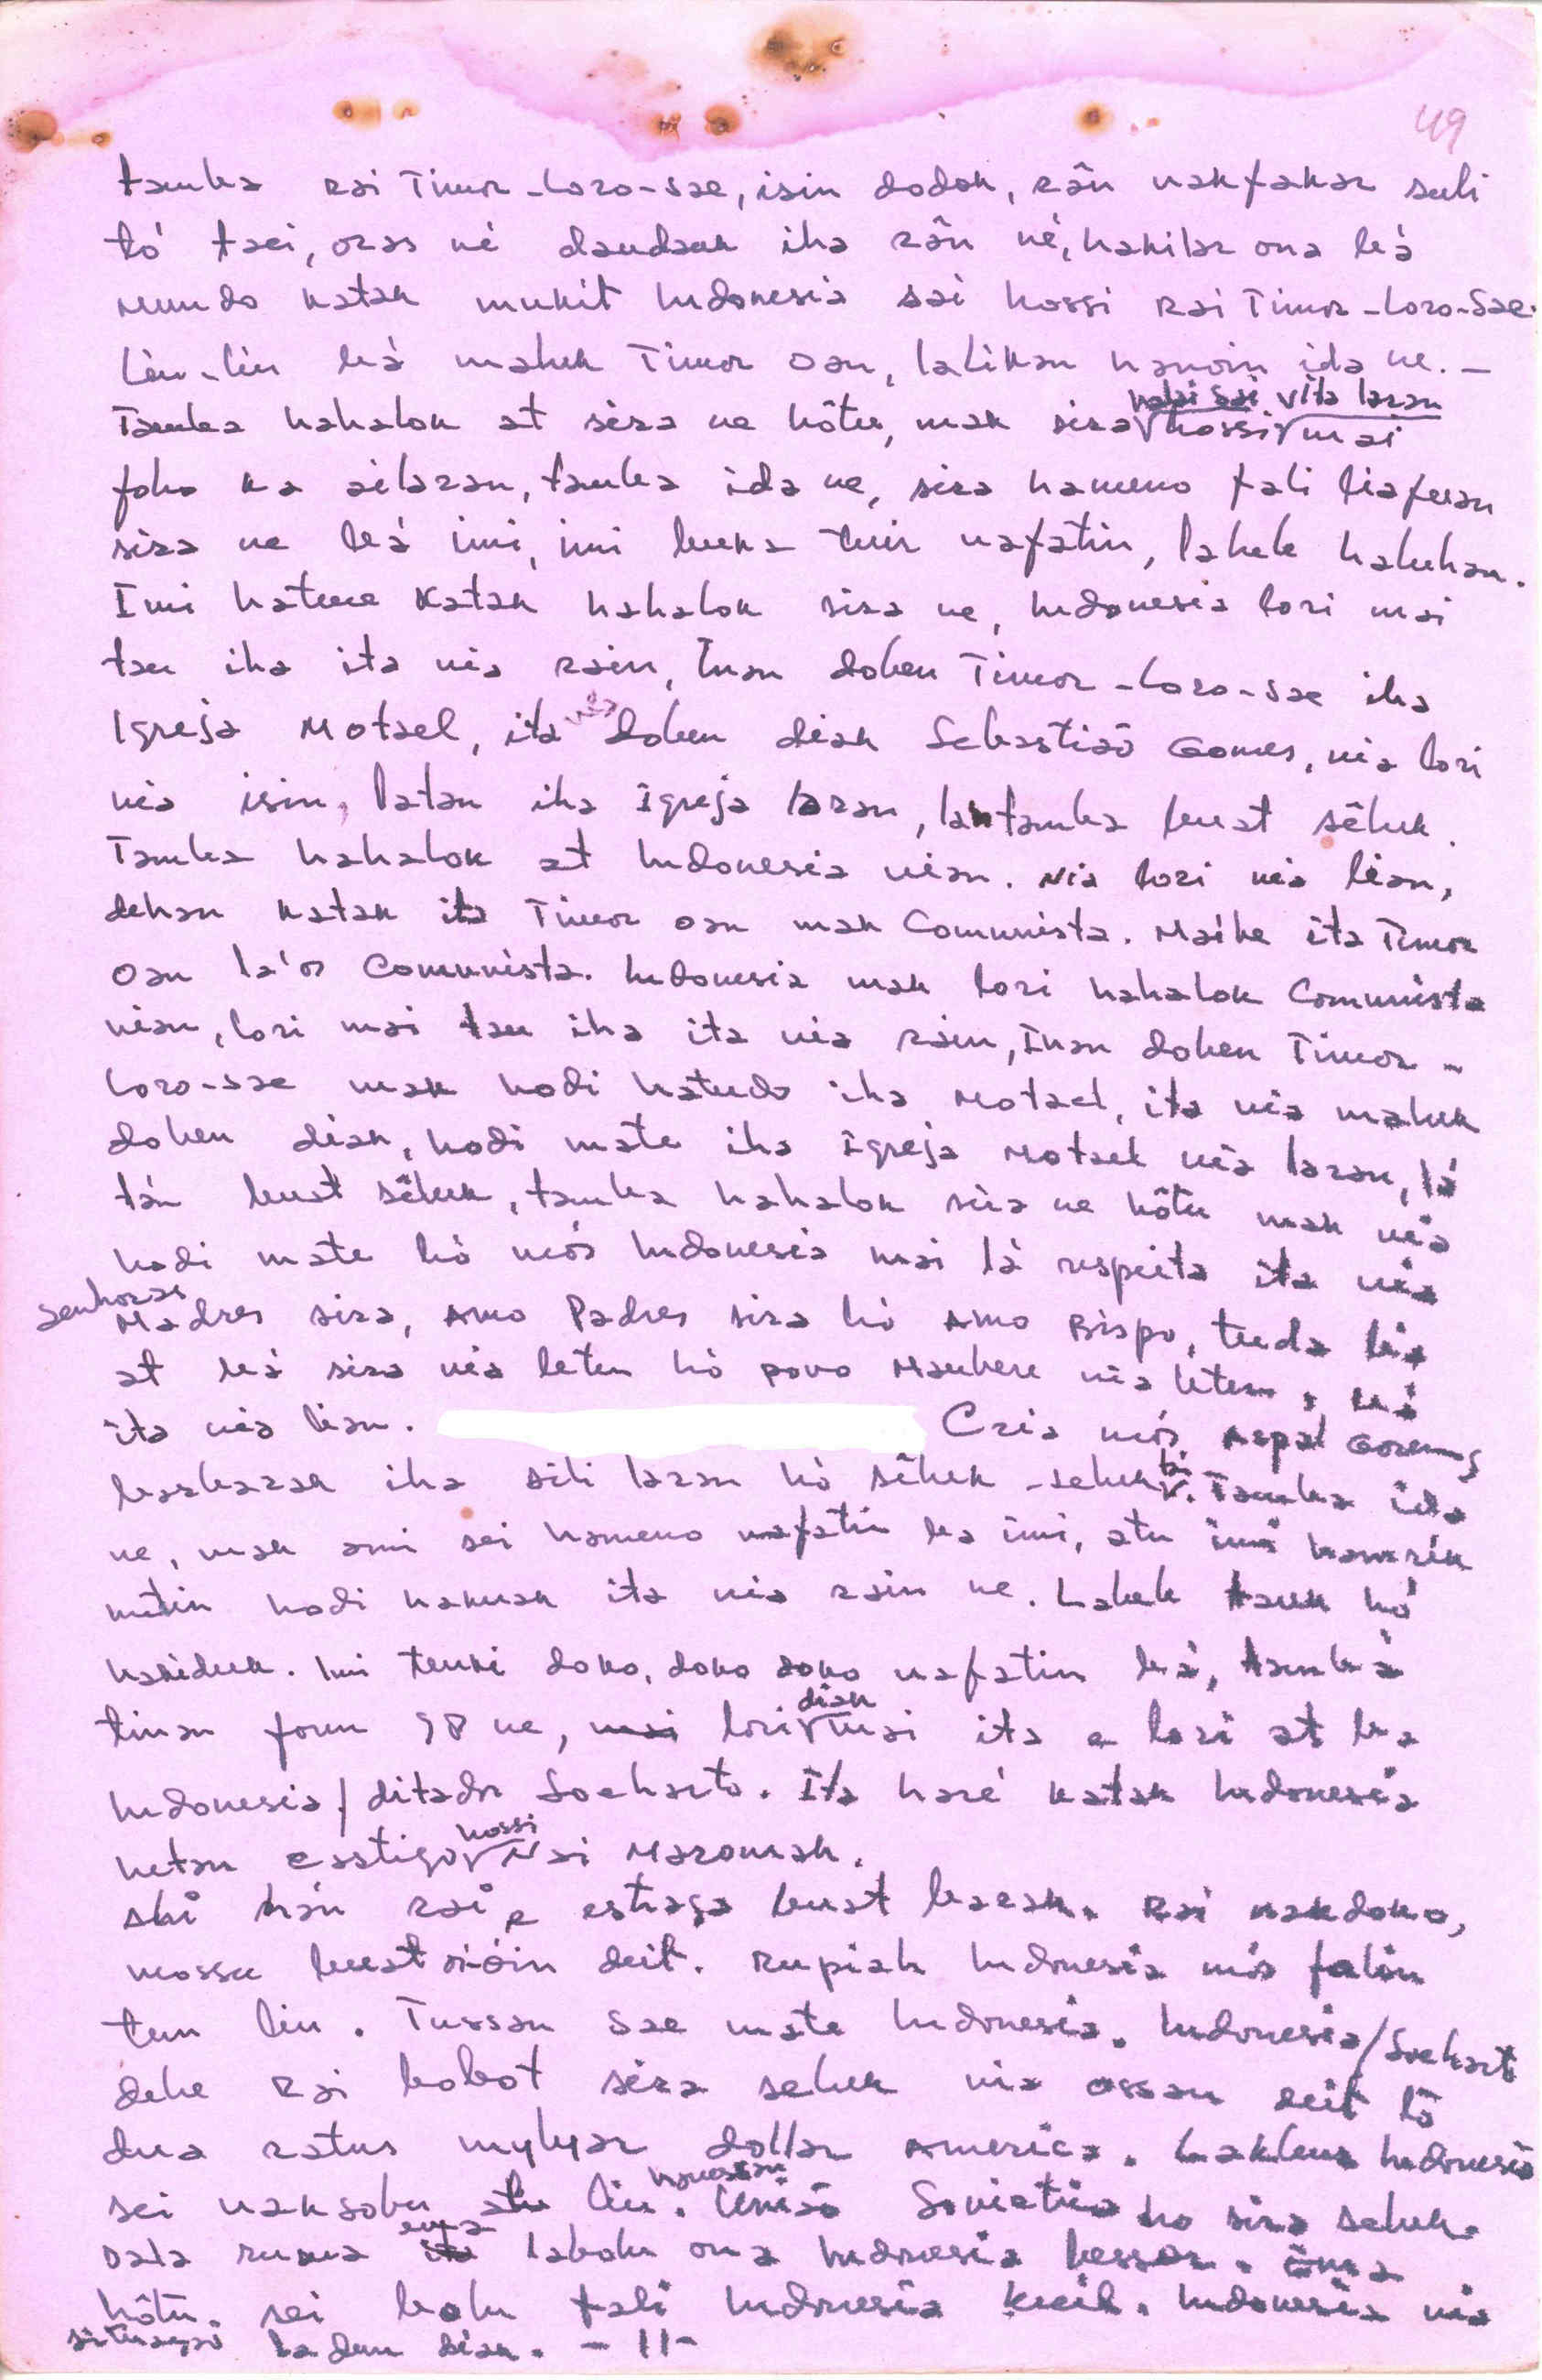 49
tamba rai Timor-Loro-sae, isin dodok, rân nakfakar suli
tó tasi, oras né daudauk iha rân né, hakilar ona bá
mundo katak mukit Indonesia sai hossi rai Timor-Loro-Sae.
Liu-liu bá maluk Timor oan, lalikan hanoin ida ne. -
Tamba hahalok at sira ne hôtu, mak sira halai sai hossi vila laran mai
foho ka ailaran, tamba ida ne, sira hameno fali liafuan
sira ne bá imi, imi buka tuir nafatin, labele haluhan.
Imi hatene katak hahalok sira ne, Indonesia lori mai
tau iha ita nia rain, Inan doben Timor-Loro-sae iha
Igreja Motael, ita nia doben diak Sebastião Gomes, nia lori
nia isin, latan iha igreja laran, lantamba buat sêluk.
Tamba hahalok at Indonesia nian. Nia lori nia lian,
dehan katak ita Timor oan mak Comunista. Maibe ita Timor
oan la'os Comunista. Indonesia mak lori hahalok Comunista
nian, lori mai tau iha ita nia rain, Inan doben Timor-
Loro-sae mak hodi hatudo iha Motael, ita nia maluk
doben diak, hodi mate iha igreja Motael nia laran, lá
tán buat sêluk, tamba hahalok sira ne hôtu mak nia
hodi mate hó mós Indonesia mai lá respeita ita nia
senhoras Madres sira, Amo Padres sira hó Amo Bispo, tuda lia
at bá sira nia leten hó povo Maubere nia leten, bá
ita nia lian. Cria mós aspal Gorens
barbarak iha sili laran hó sêluk-seluk tan. Tamba ida
ne, mak ami sei hameno nafatin ba imi, atu imi hamrik
metin hodi hakuak ita nia rain ne. Labele tauk hó
hakiduk. Imi tenki doko, doko doko nafatin bá, tamba
tinan foun 98 ne, mai lori diak mai ita e lori at ba
Indonesia/ditador Soeharto. Ita haré katak Indonesia
hetan castigo hossi Nai Maromak.
Ahi hán rai e estraga buat barak. Rai nakdoko,
mossu buat oióin deit. Rupiah Indonesia mós folin
tun liu. Tussan sae mate Indonesia. Indonesia/Soeharto
dehe rai bobot sira seluk nia ossan deit tó
dua ratus mylyar dollar America. Lakleur Indonesia
sei naksobu atu liu. hanessan União Sovietica ho sira seluk.
Data ruma ema ita labolu ona Indonesia bessar. ema
hôtu. sei bolu fali Indonesia kecil. Indonesia nia
situação la dun diak. - 11-